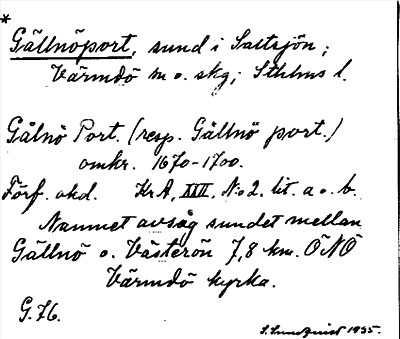 *
Gällnöport, sund i Saltsjön;
Värmdö m o. skg; Sthlms l.
Gålnö Port. (resp. Gällnö port.)
omkr. 1670-1700.
Förf. okd. KrA, XIII, N:o 2. lit. a o. b.
Namnet avsåg sundet mellan
Gällnö o. Västerön 7,8 km. ÖNÖ
Värmdö kyrka.
G. 76.
S. Sundqvist 1935.